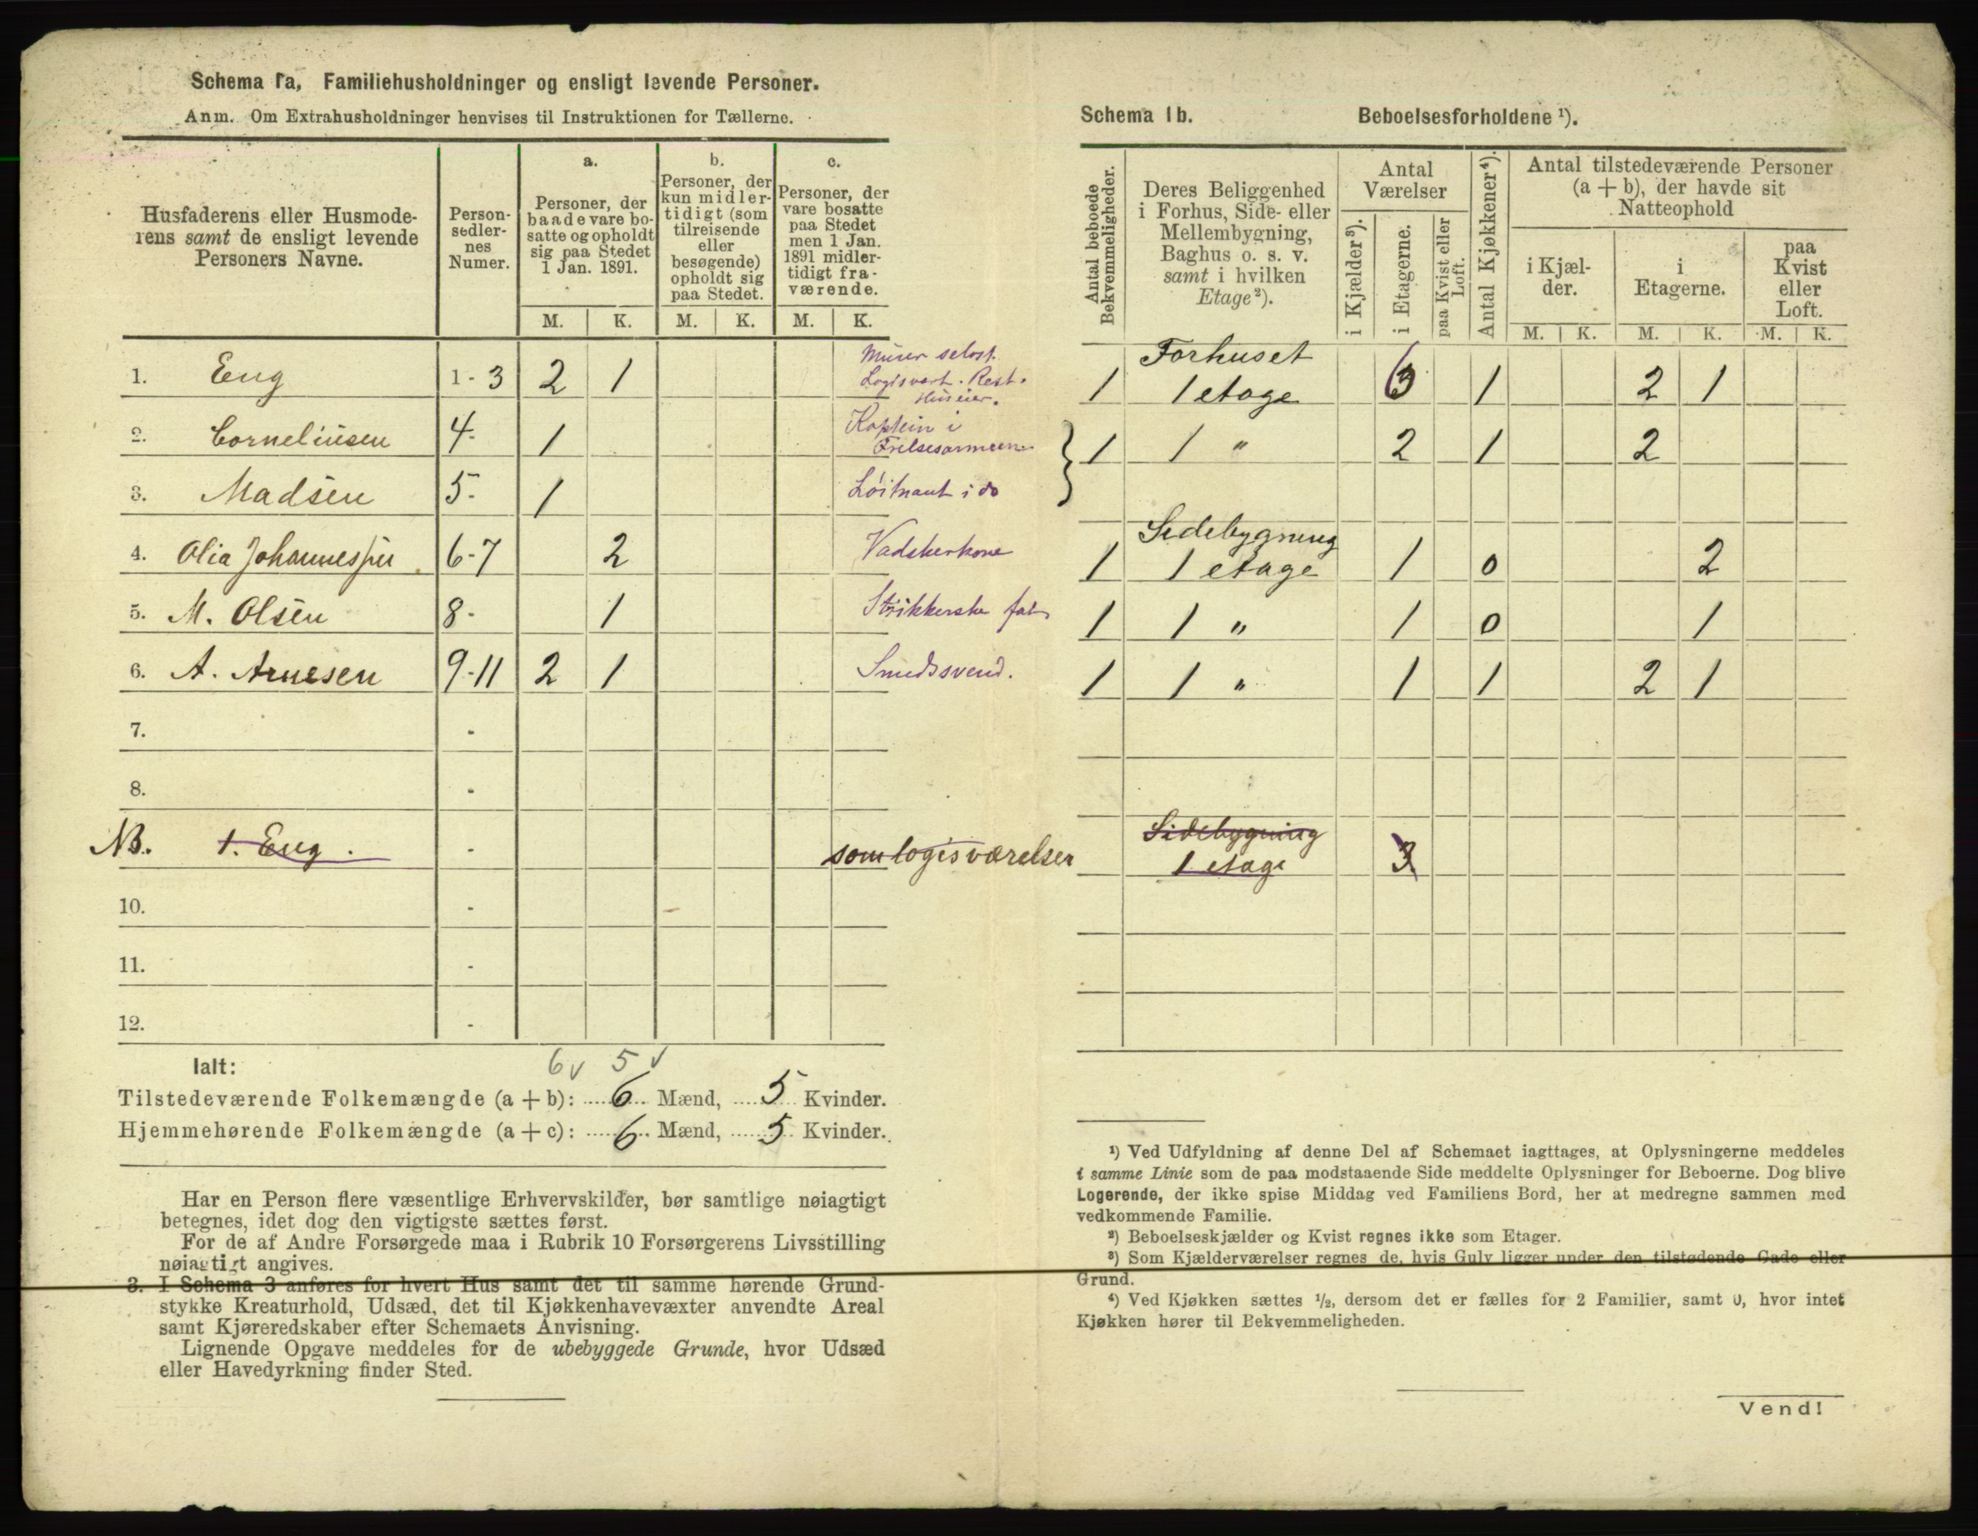 Schema 1a, Familiehusholdninger og ensligt levende Personer.
Anm. Om Extrahusholdninger henvises til Instruktionen for Tællerne.
Husfaderens eller Husmode-
rens samt de ensligt levende
Personers Navne.
Person-
sedler-
nes
Numer.
a.
Personer, der
baade vare bo-
satte og opholdt
sig paa Stedet
1 Jan. 1891.
b.
Personer, der
kun midler-
tidigt (som
tilreisende
eller
besøgende)
opholdt sig
paa Stedet.
c.
Personer, der
vare bosatte
paa Stedet
men 1 Jan.
1891 midler-
tidigt fra-
værende.
M. K. M. K. M. K.
1. Eng 1-3 2 1 Murer selvst.
Logisvert. Rest.
Huseier.
2. Corneliusen 4- 1 Kaptein i
Frelsesarmeen
3. Madsen 5- 1 Løitnant i do
4. Olia Johannesen 6-7 2 Vadskerkone
5. M. Olsen 8- 1 Strikkerske fat
6. A. Arnesen 9-11 2 1 Smedsvend.
7. -
8. -
NB. 1. Eng. - som logisværelser
10. -
11. -
12. -
Ialt:
6 v 5 v
Tilstedeværende Folkemængde (a + b): 6 Mænd, 5 Kvinder.
Hjemmehørende Folkemængde (a + c): 6 Mænd, 5 Kvinder.
Har en Person flere væsentlige Erhvervskilder, bør samtlige nøiagtigt
betegnes, idet dog den vigtigste sættes først.
For de af Andre Forsørgede maa i Rubrik 10 Forsørgerens Livsstilling
nøiagtigt angives.
3. I Schema 3 anføres for hvert Hus samt det til samme hørende Grund-
stykke Kreaturhold, Udsæd, det til Kjøkkenhavevæxter anvendte Areal
samt Kjøreredskaber efter Schemaets Anvisning.
Lignende Opgave meddeles for de ubebyggede Grunde, hvor Udsæd
eller Havedyrkning finder Sted.
Schema 1b. Beboelsesforholdene ¹).
Antal beboede
Bekvemmeligheder.
Deres Beliggenhed
i Forhus, Side- eller
Mellembygning,
Baghus o. s. v.
samt i hvilken
Etage ²).
Antal
Værelser
i Kjælder ³).
i Etagerne.
paa Kvist eller
Loft.
Antal Kjøkkener ⁴).
Antal tilstedeværende Personer
(a + b), der havde sit
Natteophold
i Kjæl-
der.
i
Etagerne.
paa
Kvist
eller
Loft.
M. K. M. K. M. K.
Forhuset
1 1 etage 6 1 2 1
1 1 " 2 1 2
Sidebygning
1 1 etage 1 0 2
1 1 " 1 0 1
1 1 " 1 1 2 1
Sidebygning
1 etage 3
¹) Ved Udfyldning af denne Del af Schemaet iagttages, at Oplysningerne meddeles
i samme Linie som de paa modstaaende Side meddelte Oplysninger for Beboerne. Dog blive
Logerende, der ikke spise Middag ved Familiens Bord, her at medregne sammen med
vedkommende Familie.
²) Beboelseskjælder og Kvist regnes ikke som Etager.
³) Som Kjælderværelser regnes de, hvis Gulv ligger under den tilstødende Gade eller
Grund.
⁴) Ved Kjøkken sættes ½, dersom det er fælles for 2 Familier, samt 0, hvor intet
Kjøkken hører til Bekvemmeligheden.
Vend!